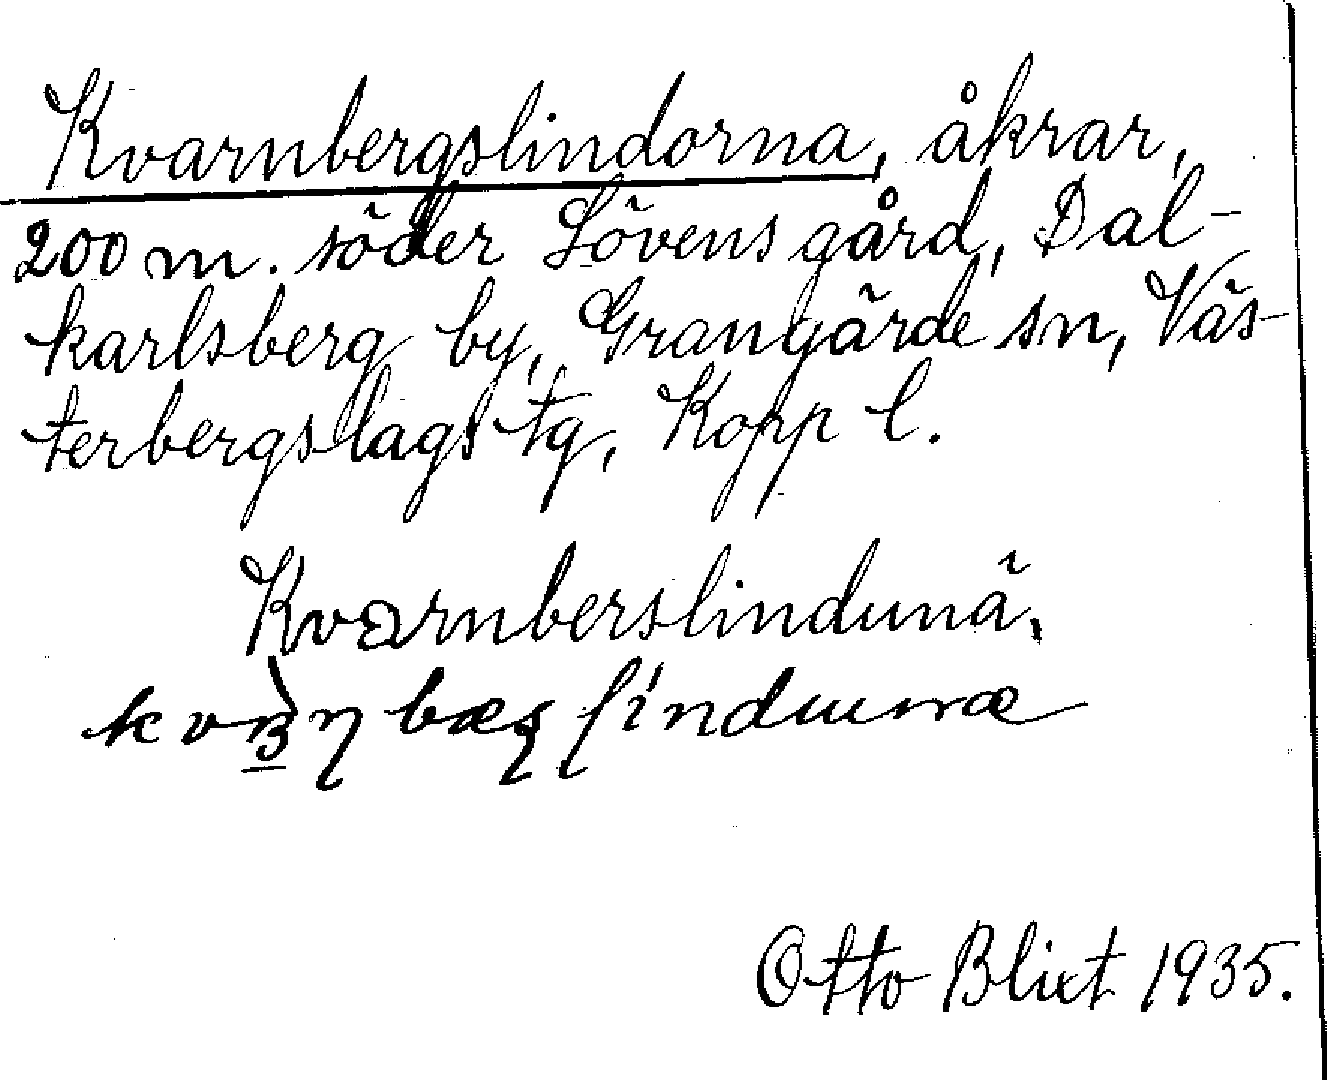 Kvarnbergslindorna, åkrar,
200 m. söder Lövens gård, Dal-
karlsberg by, Grangärde sn, Väs-
terbergslags tg, Kopp l.
Kvarnberslindunä.
Otto Blixt 1935.